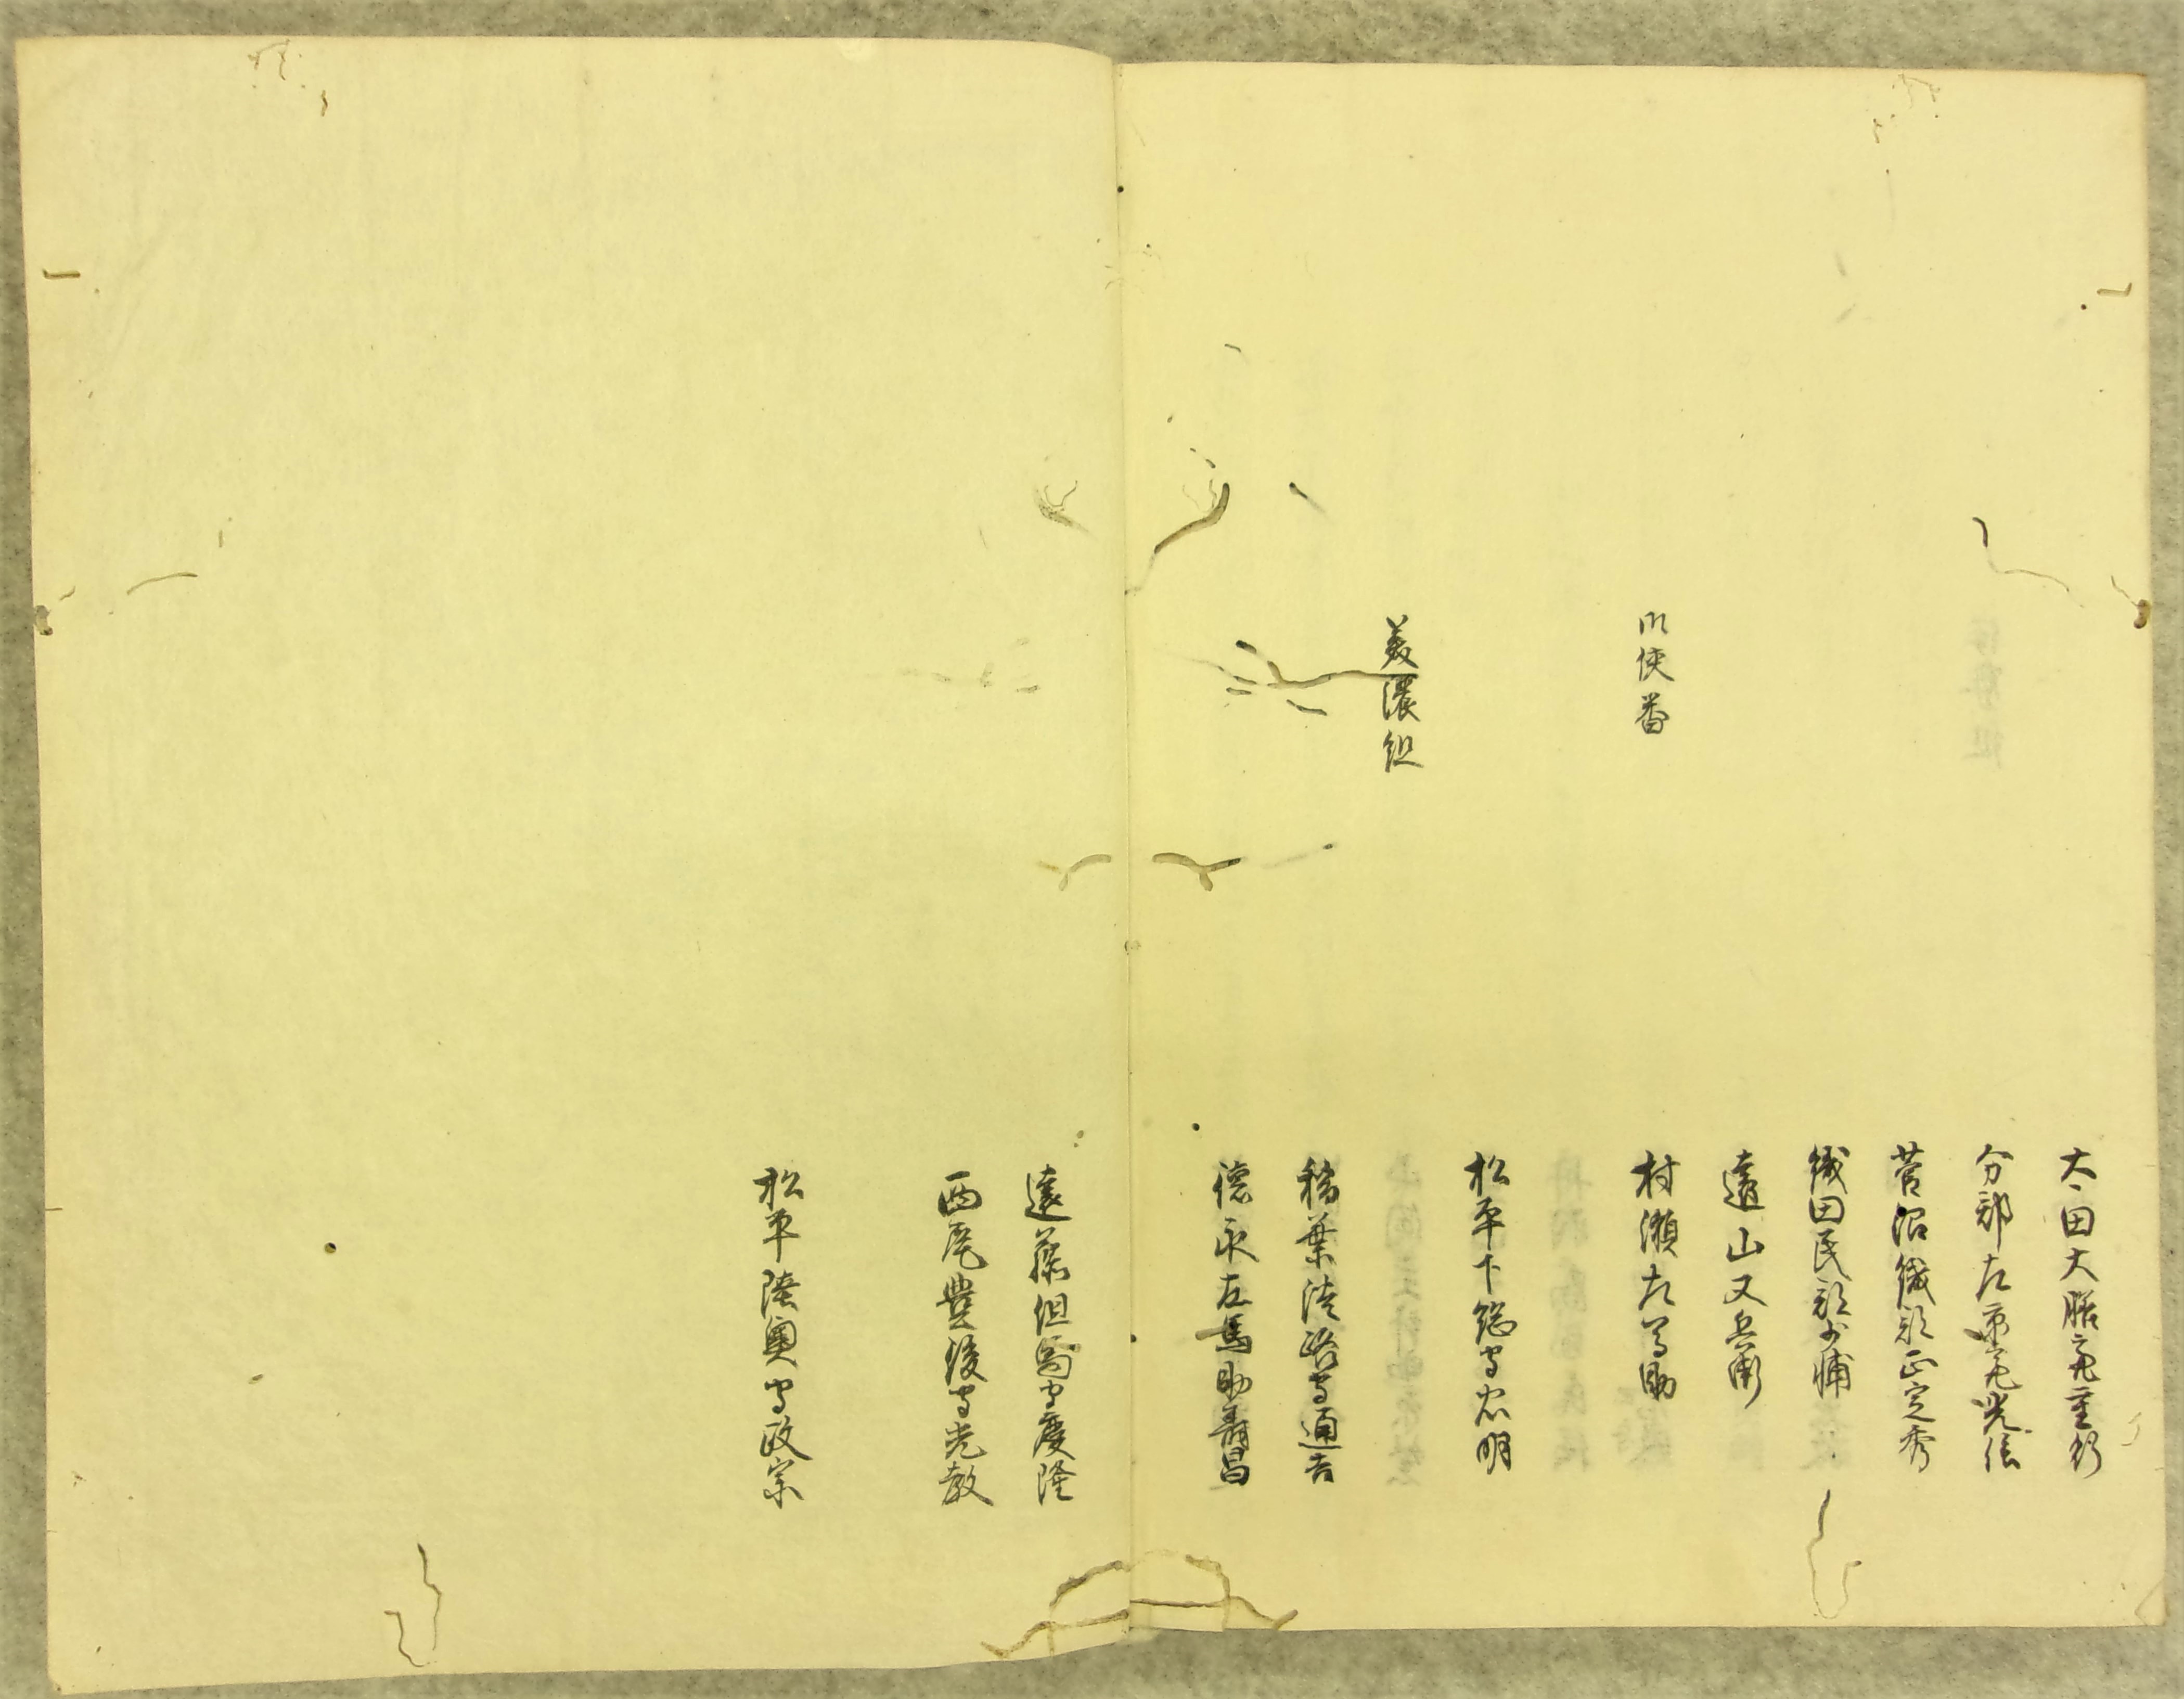 太田大膳亮重
分部左京亮光信
菅沼織部正定秀
織田民部少輔
遠山又兵衛
御使番
村瀬左馬助
松平下総守忠明
美濃組
稲葉淡路守通吉
徳永左馬助壽昌
遠藤但馬守慶隆
西尾豊後守光教
松平陸奥守政宗